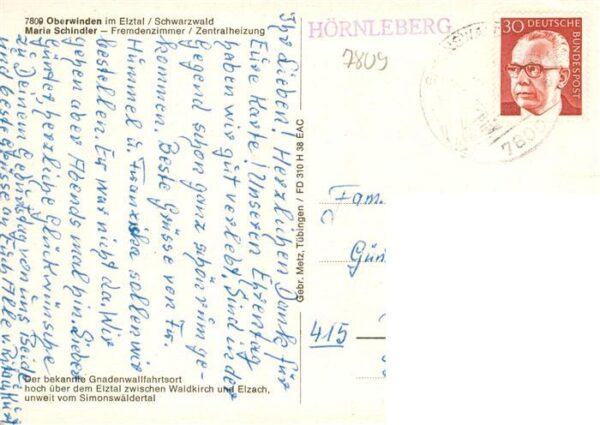 7809 Oberwinden im Elztal / Schwarzwald
Maria Schindler – Fremdenzimmer / Zentralheizung
HÖRNLEBERG
7809
30 DEUTSCHE
BUNDESPOST
7809
Ihr Lieben! Herzlichen Dank für
Eure Karte! Unseren Ehrentag
haben wir gut verlebt. Sind in der
Gegend schon ganz schön rum ge-
kommen. Beste Grüsse von Fr.
Hümmel u. Franziska sollen wir
bestellen. Er war nicht da. Wir
gehen aber Abends mal hin. Lieber
Günter, herzliche Glückwünsche
zu Deinem Geburtstag von uns Beide
und beste Grüsse an Euch Alle v.
Gebr. Metz, Tübingen / FD 310 H 38 EAC
Fam.
Gün
415
Der bekannte Gnadenwallfahrtsort
hoch über dem Elztal zwischen Waldkirch und Elzach,
unweit vom Simonswäldertal